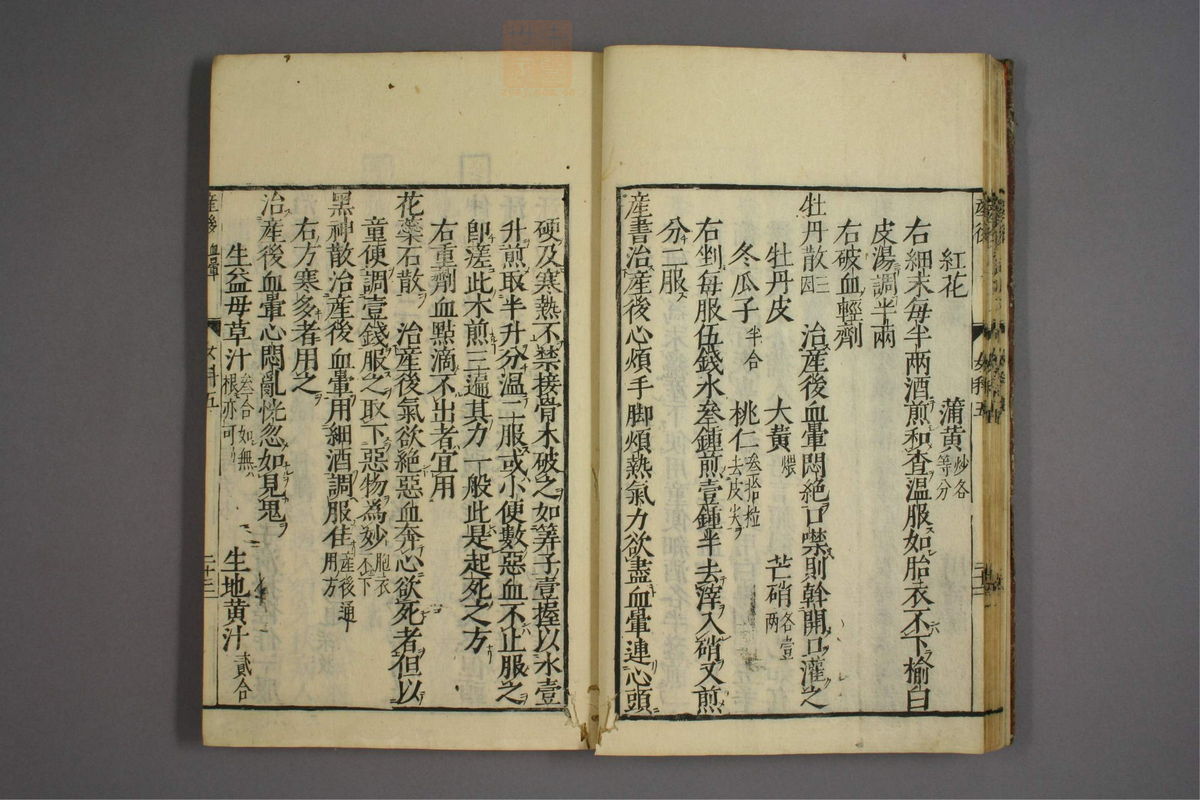 産後
女科五
紅花 蒲黄炒各等分
右細末毎半兩酒煎和査温服如胎衣不下榆白
皮湯調半兩
右破血輕劑
牡丹散 治産後血暈悶絶口噤則斡開口灌之
牡丹皮 大黄煨 芒硝各壹兩
冬瓜子半合 桃仁叁拾粒去皮尖
右剉毎服伍錢水叁鍾煎壹鍾半去滓入硝又煎
分二服
産書治産後心煩手脚煩熱氣力欲盡血暈連心頭
硬及寒熱不禁接骨木破之如筭子壹握以水壹
升煎取半升分温二服或小便數惡血不止服之
即瘥此木煎三遍其力一般此是起死之方
右重劑血點滴不出者宜用
花蘂石散 治産後氣欲絶惡血奔心欲死者但以
童便調壹錢服之取下惡物為妙胞衣不下
黑神散治産後血暈用細酒調服佳産後通用方
右方寒多者用之
治産後血暈心悶亂恍忽如見鬼
生益母草汁叁合如無根亦可 生地黄汁貳合
産後 血暈
女科五
二十三